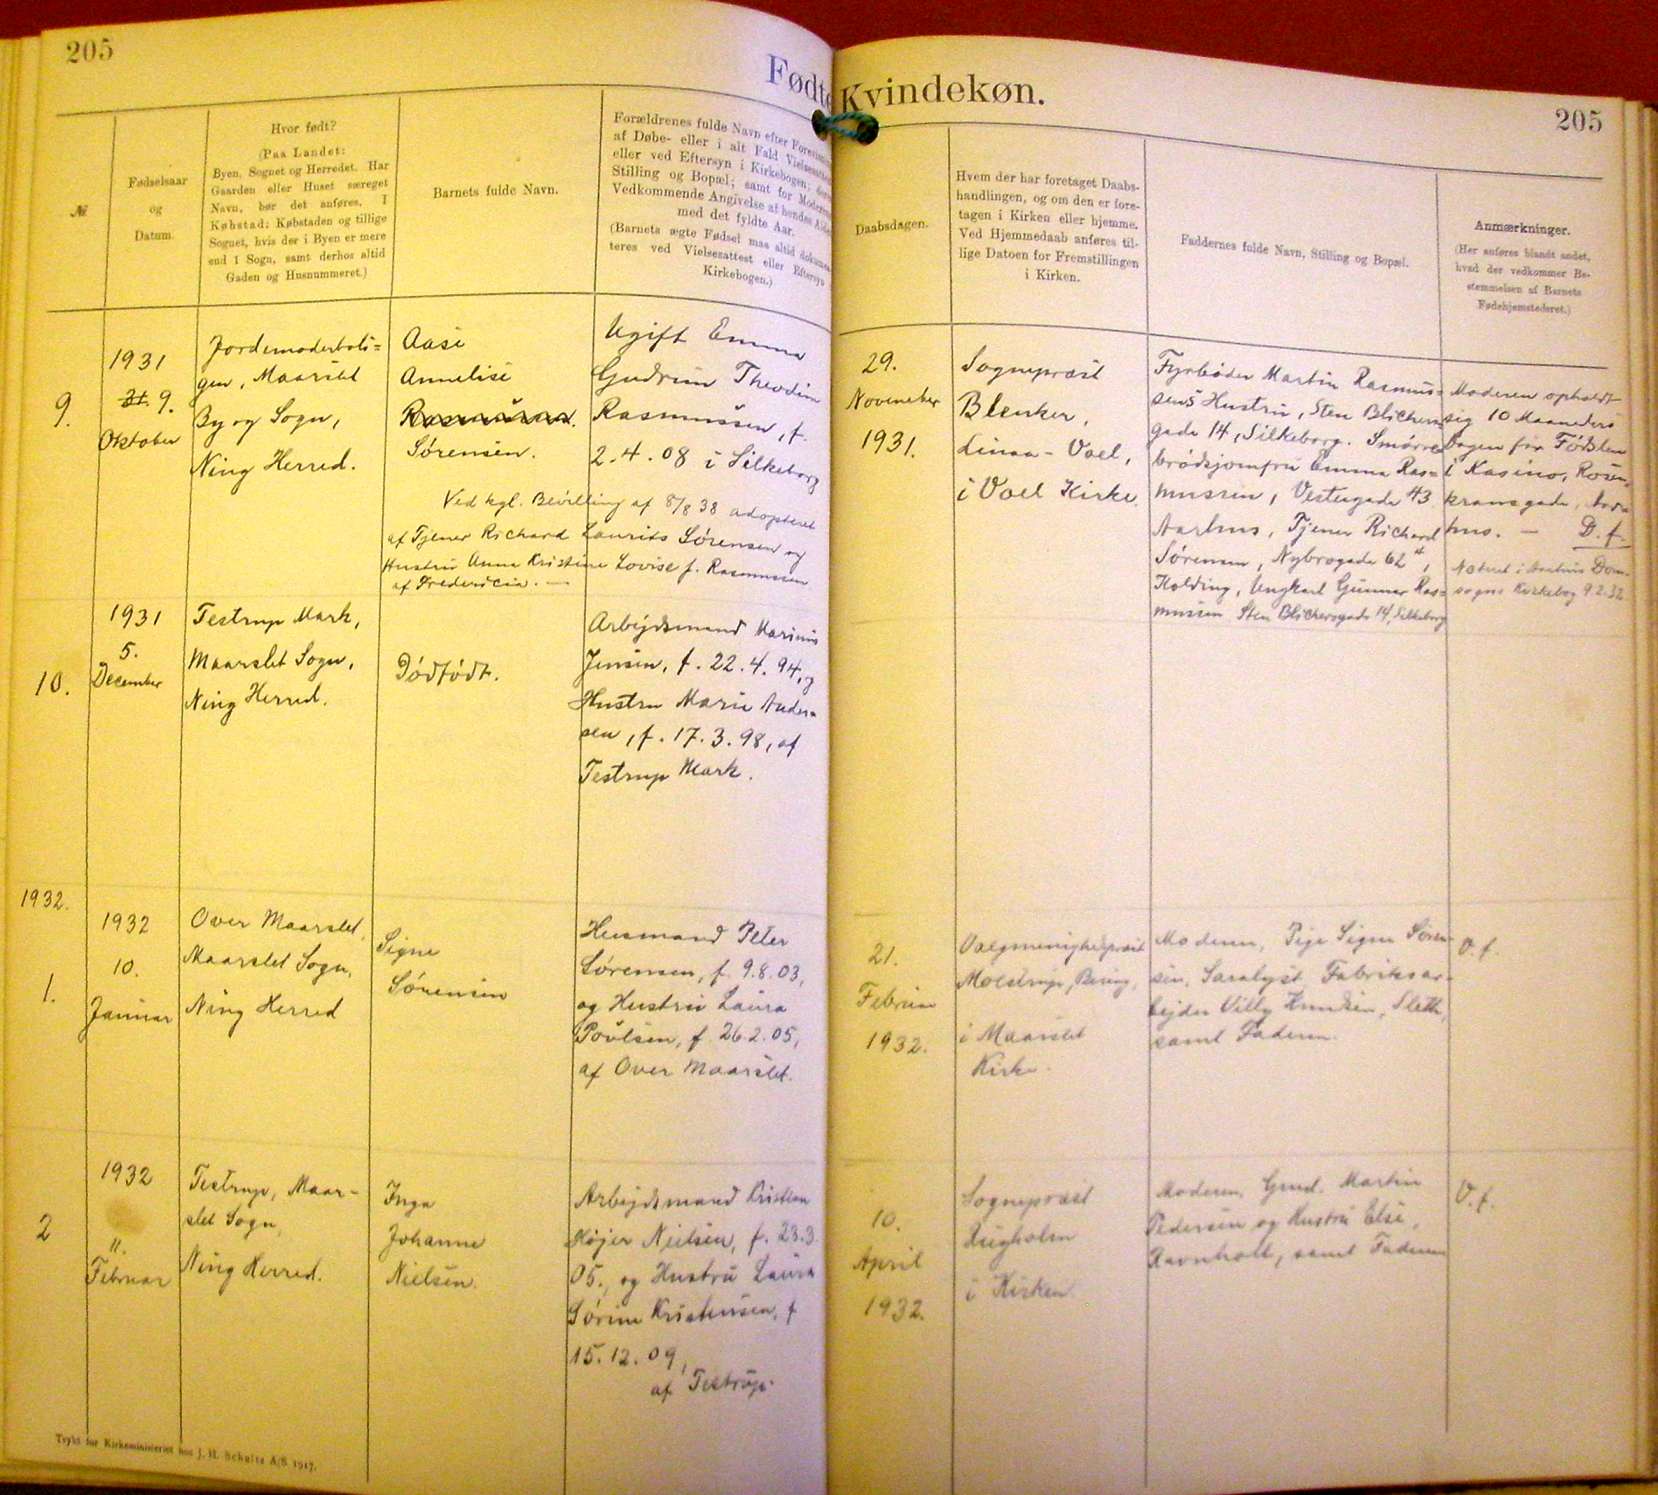 205
Fødte
Kvindekøn.
205
№
Fødselsaar
og
Datum.
Hvor født?
(Paa Landet:
Byen, Sognet og Herredet. Har
Gaarden eller Huset særeget
Navn, bør det anføres. I
Købstad: Købstaden og tillige
Sognet, hvis der i Byen er mere
end 1 Sogn, samt derhos altid
Gaden og Husnummeret.)
Barnets fulde Navn.
Forældrenes fulde Navn efter
af Døbe- eller i alt Fald
eller ved Eftersyn i Kirkebogen;
Stilling og Bopæl; samt for
Vedkommende Angivelse af hendes
med det fyldte Aar.
(Barnets ægte Fødsel maa altid
teres ved Vielsesattest eller Eftersyn
Kirkebogen.)
Daabsdagen.
Hvem der har foretaget Daabs-
handlingen, og om den er fore-
tagen i Kirken eller hjemme.
Ved Hjemmedaab anføres til-
lige Datoen for Fremstillingen
i Kirken.
Faddernes fulde Navn, Stilling og Bopæl.
Anmærkninger.
(Her anføres blandt andet,
hvad der vedkommer Be-
stemmelsen af Barnets
Fødehjemstederet.)
9.
1931
9.
Oktober
Jordemoderboli=
gen, Maarslet
By og Sogn,
Ning Herred.
Aase
Annelise
Rasmussen.
Sørensen.
Ugift Emma
Gudrun Theodine
Rasmussen, f.
2.4.08 i Silkeborg
Ved kgl. Bevilling af 8/8 38 adopteret
af Tjener Richard Laurits Sørensen og
Hustru Anna Kristine Lovise f. Rasmussen
af Fredericia. —
29.
November
1931.
Sognepræst
Blenker,
Linaa - Voel,
i Voel Kirke.
Fyrbøder Martin Rasmus=
sens Hustru, Sten Blichers
gade 14, Silkeborg. Smørre
brødsjomfru Emma Ras=
mussen, Vestergade 43
Aarhus, Tjener Richard
Sørensen, Nybrogade 62,
Kolding, Ungkarl Gunnar Ras=
mussen Sten Blichersgade 14, Silkeborg
Moderen opholdt
sig 10 Maaneders
dagen før Fødslen
i Kasino, Rosen,
kransgade, Aar=
hus. — D. f.
Noteret i Aarhus Dom-
sogns Kirkebog 9.2.32
10.
1931
5.
December
Testrup Mark,
Maarslet Sogn,
Ning Herred.
Dødfødt.
Arbejdsmand Marinus
Jensen, f. 22.4.94, og
Hustru Marie Ander=
sen, f. 17.3.98, af
Testrup Mark.
1932.
1.
1932
10.
Januar
Over Maarslet,
Maarslet Sogn,
Ning Herred
Signe
Sørensen
Husmand Peter
Sørensen, f. 9.8.03,
og Hustru Laura
Poulsen, f. 26.2.05,
af Over Maarslet.
21.
Februar
1932.
Valgmenighedspræst
Moestrup, Bering,
i Maarslet
Kirke.
Moderen, Pige Signe Søren-
sen, Fabriksar-
bejder Villy Knudsen, Sleth,
samt Faderen.
D. f.
2
1932
11.
Februar
Testrup, Maar-
slet Sogn,
Ning Herred.
Inga
Johanne
Nielsen.
Arbejdsmand Kristian
Højer Nielsen, f. 23.3.
05., og Hustru Laura
Sørine Kristensen, f
15.12.09,
af Testrup.
10.
April
1932.
Sognepræst
i Kirken
Moderen, Gmd. Martin
Pedersen og Hustru Else,
Ravnholt, samt Faderen
D. f.
Trykt for Kirkeministeriet hos J. H. Schultz A/S. 1917.